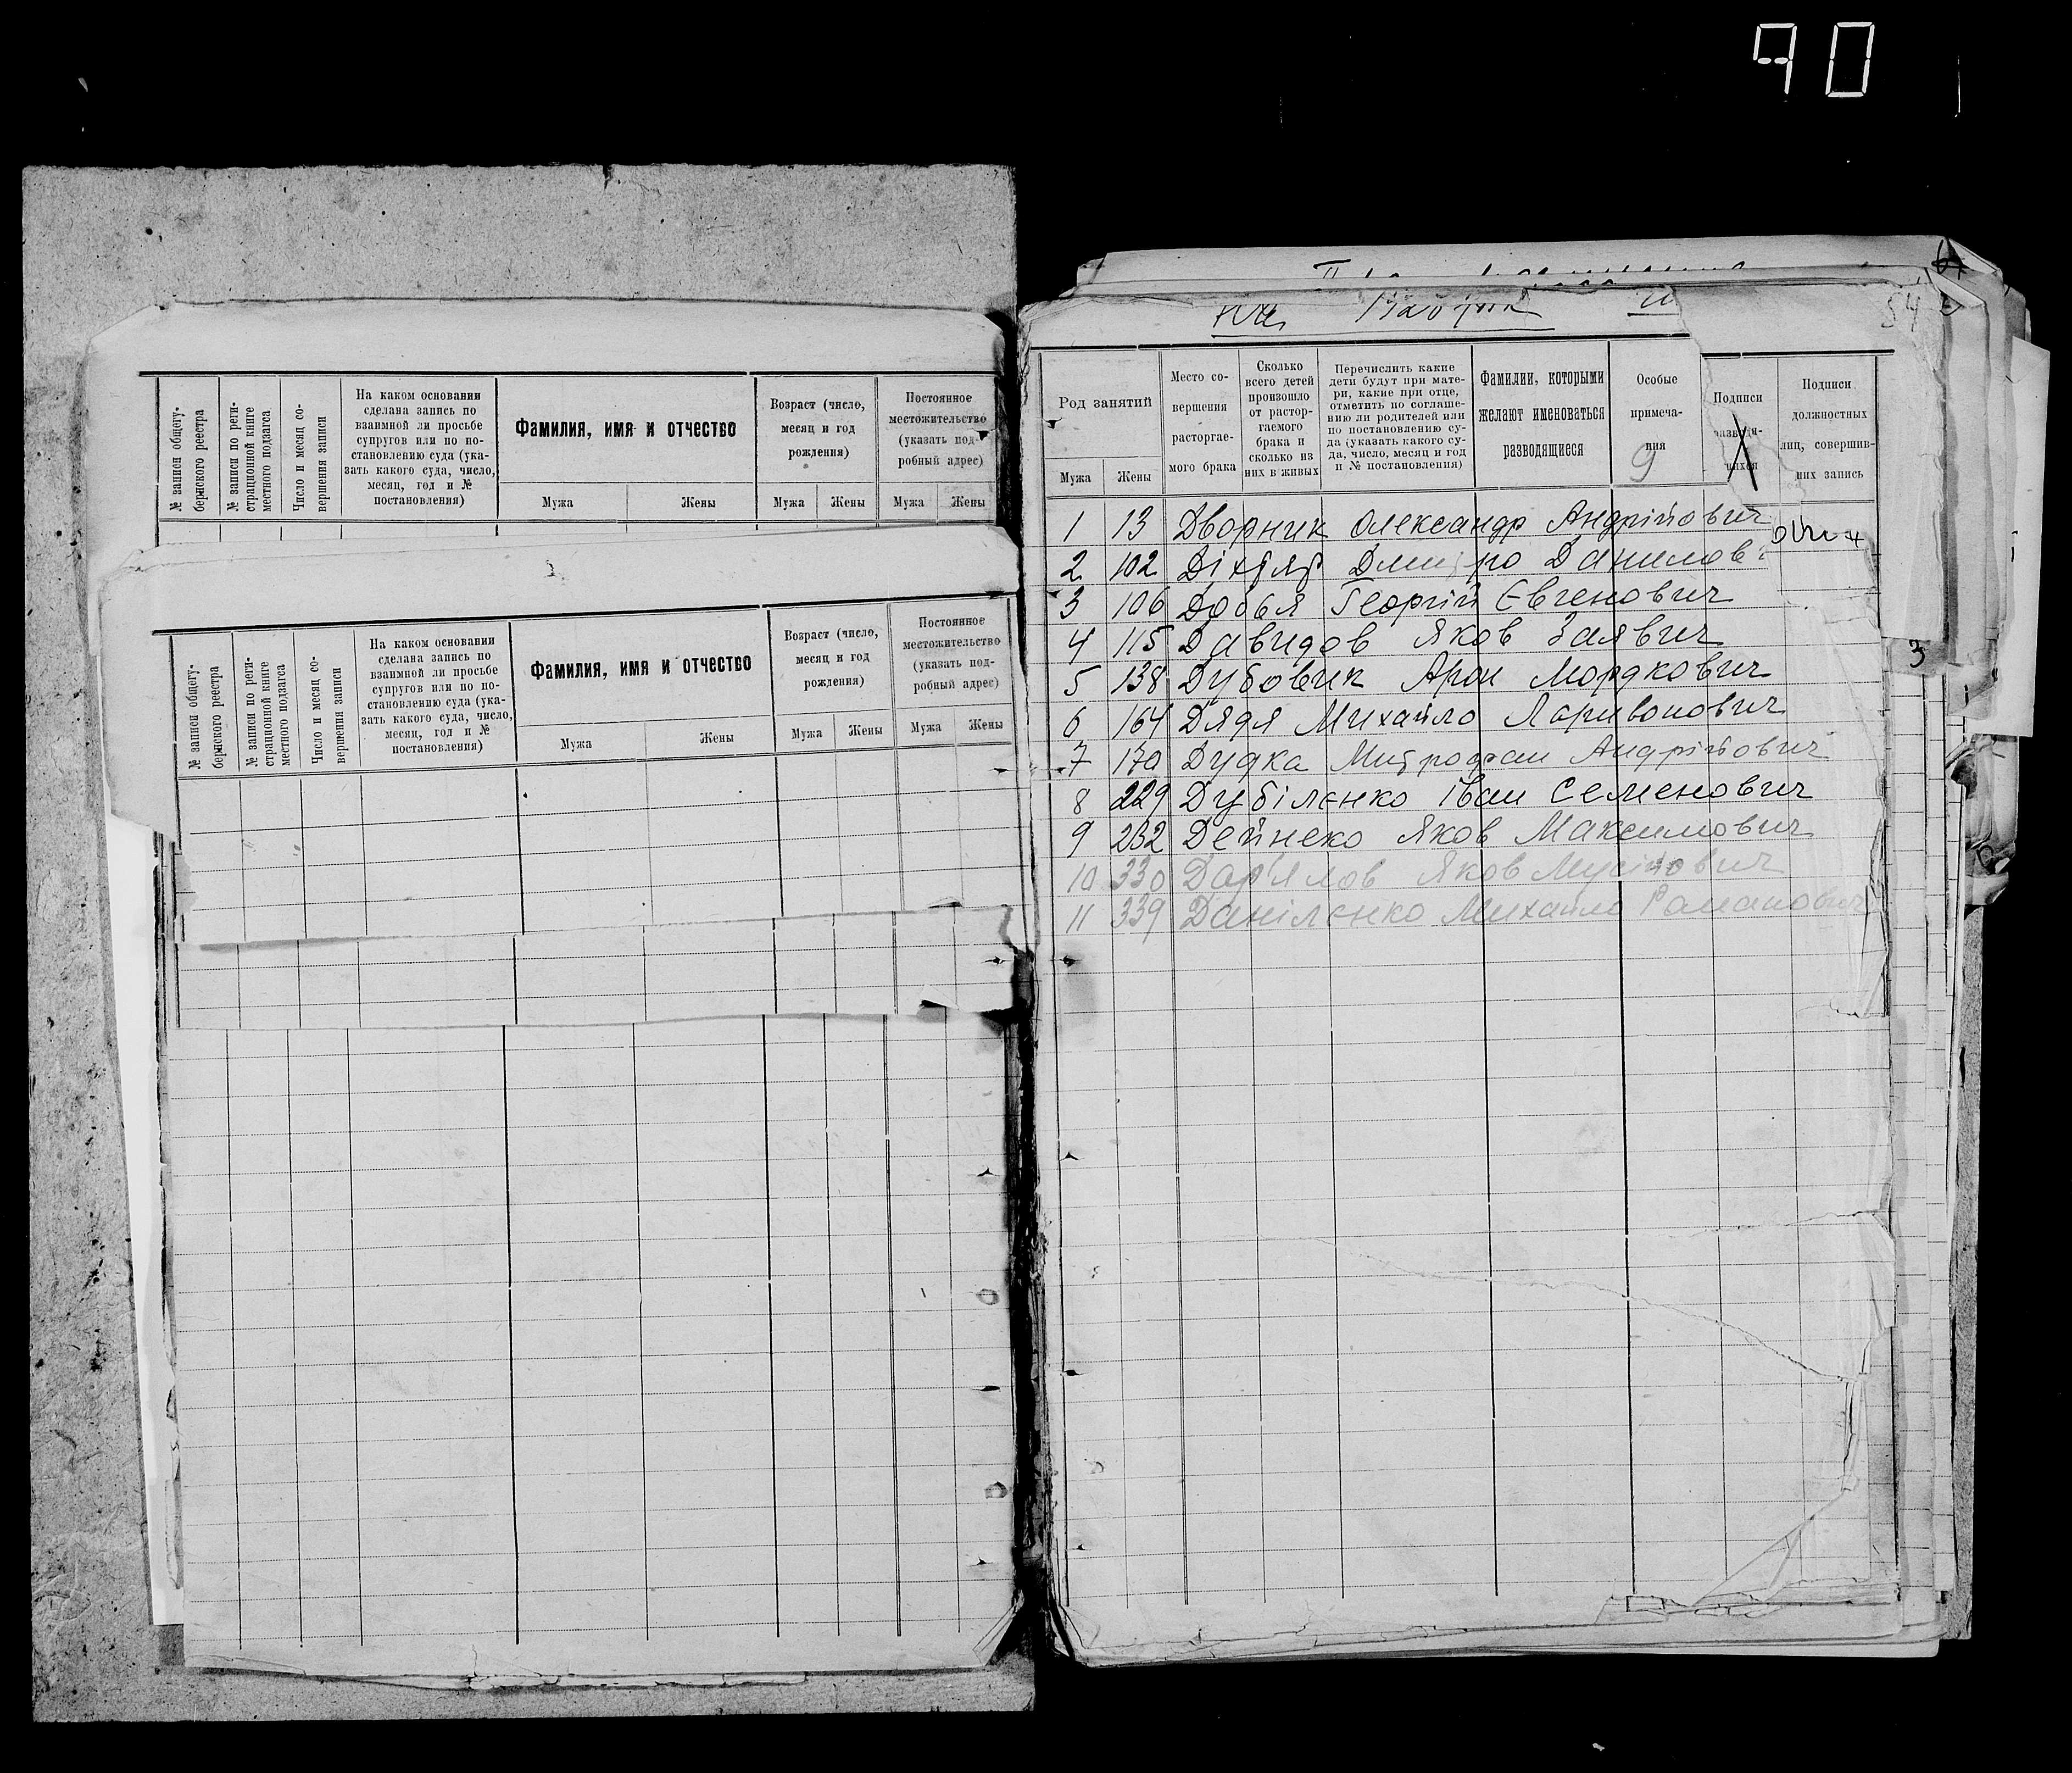 90
№ записи общегу-
бернского реестра
№ записи по реги-
страционной книге
местного подзагса
Число и месяц со-
вершения записи
На каком основании
сделана запись по
взаимной ли просьбе
супругов или по по-
становлению суда (ука-
зать какого суда, число,
месяц, год и №
постановления)
Фамилия, имя и отчество
Мужа Жены
Возраст (число,
месяц и год
рождения)
Мужа Жены
Постоянное
местожительство
(указать под-
робный адрес)
Мужа Жены
№ записи общегу-
бернского реестра
№ записи по реги-
страционной книге
местного подзагса
Число и месяц со-
вершения записи
На каком основании
сделана запись по
взаимной ли просьбе
супругов или по по-
становлению суда (ука-
зать какого суда, число,
месяц, год и №
постановления)
Фамилия, имя и отчество
Мужа Жены
Возраст (число,
месяц и год
рождения)
Мужа Жены
Постоянное
местожительство
(указать под-
робный адрес)
Мужа Жены
54
Род занятий
Мужа Жены
Место со-
вершения
расторгае-
мого брака
Сколько
всего детей
произошло
от растор-
гаемого
брака и
сколько из
них в живых
Перечислить какие
дети будут при мате-
ри, какие при отце,
отметить по соглаше-
нию ли родителей или
по постановлению су-
да (указать какого су-
да, число, месяц и год
и № постановления)
Фамилии, которыми
желают именоваться
разводящиеся
Особые
примеча-
ния
9
Подписи
разводя-
щихся
Подписи
должностных
лиц, совершив-
ших запись
1 13 Дворник Олександр Андрійович
2 102 Дміtro Данилов
3 106 Георгій Євгенович
4 115 Давидов Яков
5 138 Дубовик Арон Мордкович
6 164 Дядя Михайло Ларивонович
7 170 Дудка Митрофан Андрійович
8 229 Дубіленко Іван Семенович
9 232 Дейнеко Яков Максимович
10 330 Дар'ялов Яков Мусійович
11 339 Даніленко Михайло Романович
3